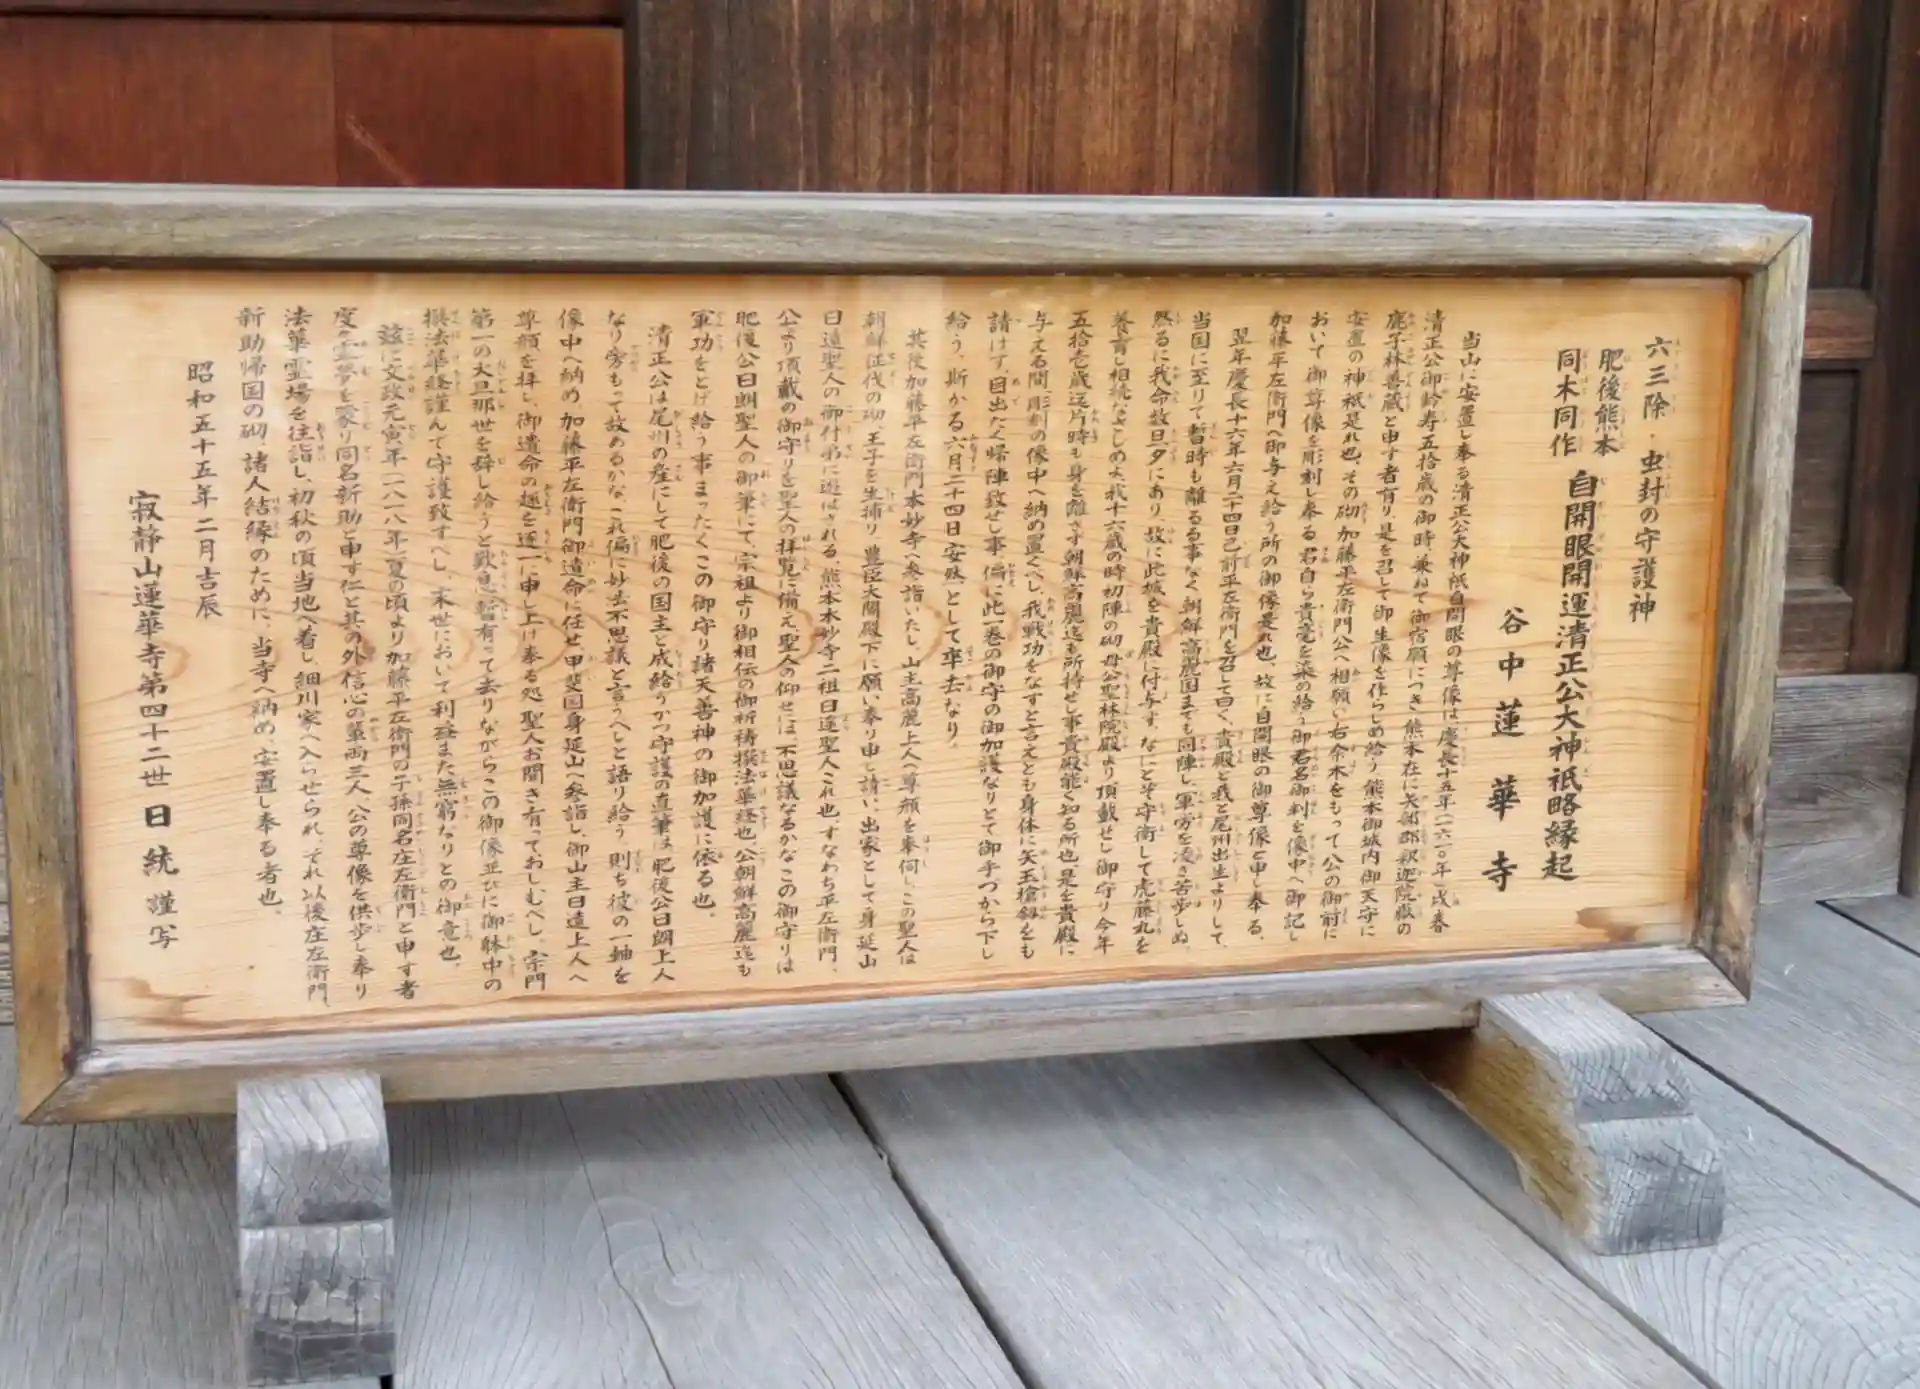 六三除・虫封の守護神
肥後熊本
同木同作
自開眼開運清正公大神祇略縁起
谷中蓮華寺
当山に安置し奉る清正公大神祇自開眼の尊像は、慶長十五年(一六一〇年)戌春
清正公御齢寿五拾歳の御時、兼ねて御宿願につき熊本在に矢部郡釈迦院嶽の
鹿子林善蔵と申す者有り、是を召して御生像を作らしめ給う、熊本御城内御天守に
安置の神祇是れ也、その砌加藤平左衛門公へ相願い右余木をもって公の御前に
おいて御尊像を彫刻し奉る、君自ら貴毫を染め給う御君名御判を像中へ御記し
加藤平左衛門へ御与え給う所の御像是れ也、故に自開眼の御尊像と申し奉る、
翌年慶長十六年六月二十四日己前平左衛門を召して曰く、貴殿と我と尾州出生よりして、
当国に至りて暫時も離るる事なく朝鮮高麗国までも同陣し、軍労を凌き苦歩しぬ
然るに我命数旦夕にあり、故に此城を貴殿に付与す、なにとぞ守衛して虎藤丸を
養育し相続なさしめよ、我十六歳の時初陣の砌母公聖林院殿より頂戴せし御守り今年
五拾壱歳迄片時も身を離さず朝鮮高麗迄も所持せし事貴殿能く知る所也、是を貴殿に
与える間、彫刻の像中へ納め置くべし、我戦功をなすと言えとも身体に矢玉槍劔をも
請けず、目出たく帰陣致せし事、偏に此一巻の御守の御加護なりとて御手づから下し
給う、斯かる六月二十四日安然として卒去なり。
其後加藤平左衛門本妙寺へ参詣いたし、山主高麗上人へ尊顔を奉伺し、この聖人は
朝鮮征伐の砌、王子を生捕り、豊臣大閤殿下に願い奉り申し請い、出家として身延山
日遠聖人の御付弟に遊ばされる、熊本本妙寺二祖日遥聖人これ也、すなわち平左衛門、
公より頂戴の御守りを聖人の拝覧に備え、聖人の仰せには、不思議なるかなこの御守りは
肥後公日朗聖人の御筆にて、宗祖より御相伝の御祈祷撰法華経也、公朝鮮高麗迄も
軍功をとげ給う事まったくこの御守り諸天善神の御加護に依る也。
清正公は尾州の産にして肥後の国主と成給うかつ守護の直筆は、肥後公日朗上人
なり、旁もって故あるかな、これ偏に妙法不思議と言うべしと語り給う、則ち彼の一軸を
像中へ納め、加藤平左衛門御遺命に任せ、甲斐国身延山へ参詣し、御山主日遠上人へ
尊顔を拝し、御遺命の趣を逐一に申し上げ奉る処、聖人お聞き有っておしむべし、宗門
第一の大旦那世を辞し給うと歎息暫有って去りながらこの御像並びに御躰中の
撰法華経謹んで守護致すべし、末世において利益また無窮なりとの御意也、
玆に文政元寅年(一八一八年)夏の頃より加藤平左衛門の子孫同名庄左衛門と申す者
度々霊夢を蒙り同名新助と申す仁と其の外信心の輩両三人、公の尊像を供歩し奉り
法華霊場を往詣し、初秋の頃当地へ着し、細川家へ入らせられ、それ以後庄左衛門、
新助帰国の砌、諸人結縁のために、当寺へ納め、安置し奉る者也。
昭和五十五年二月吉辰
寂静山蓮華寺第四十二世 日統 謹写